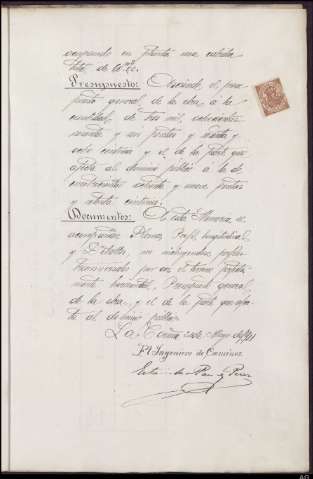 ocupando en planta una extensión
total de
Presupuesto: Asciende el presu-
puesto general de la obra a la
cantidad de tres mil, ochocientas
noventa y seis pesetas y setenta y
ocho céntimos y el de la parte que
afecta al dominio público a la de
cuatrocientas setenta y nueve pesetas
y ochenta céntimos.
Documentos: A esta Memoria se
acompañan Plano, Perfil longitudinal,
y Detalles, no incluyendo perfiles
transversales por ser el terreno
horizontal, Presupuesto general
de la obra y el de la parte que afec-
ta al dominio público.
La Coruña de Mayo de 1901
El Ingeniero de Caminos